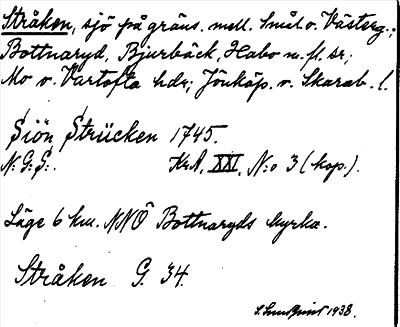 Stråken, sjö på gräns. mell. Smål. o. Västerg.;
Bottnaryd, Bjurbäck, Habo m. fl. sr;
Mo o. Vartofta hdr; Jönköp. o. Skarab. l.
Siön Strücken 1745.
N: G: S:. KrA, XXI, N:o 3 (kop.).
Läge 6 km. NNÖ Bottnaryds kyrka.
Stråken G. 34.
1938.